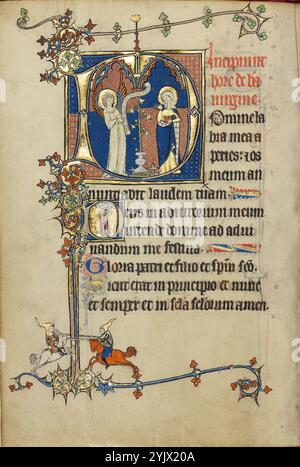 Incipiunt
hore de ba
uirgine
Domine la
bia mea a
peries: & os
meum an
nunciabit laudem tuam.
Deus in adiutorium meum
Intende domine ad adiu
uandum me festina.
Gloria patri et filio et spũi sco.
Sicut erat in principio et nunc
et semper et in scla sclorum amen.
alamy
Image ID: 2YJX20A
www.alamy.com